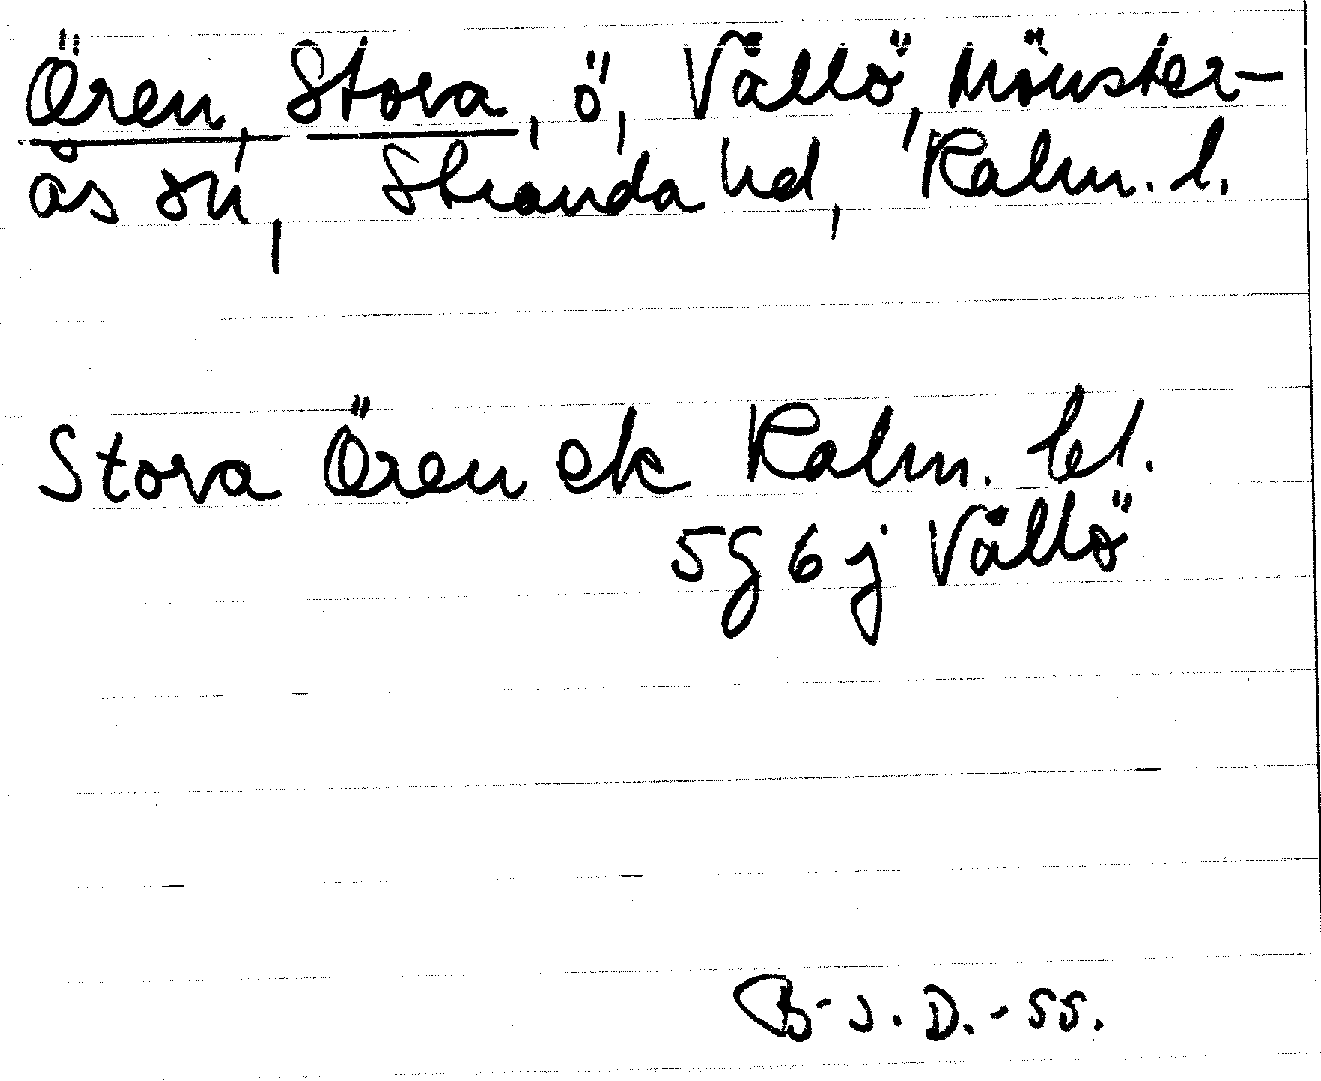 Ören, Stora, ö, Vållö, Mönster-
ås sn, Stranda hd, Kalm. l.
Stora Ören ek Kalm. bl.
5g6j Vållö
B-J.D.-55.